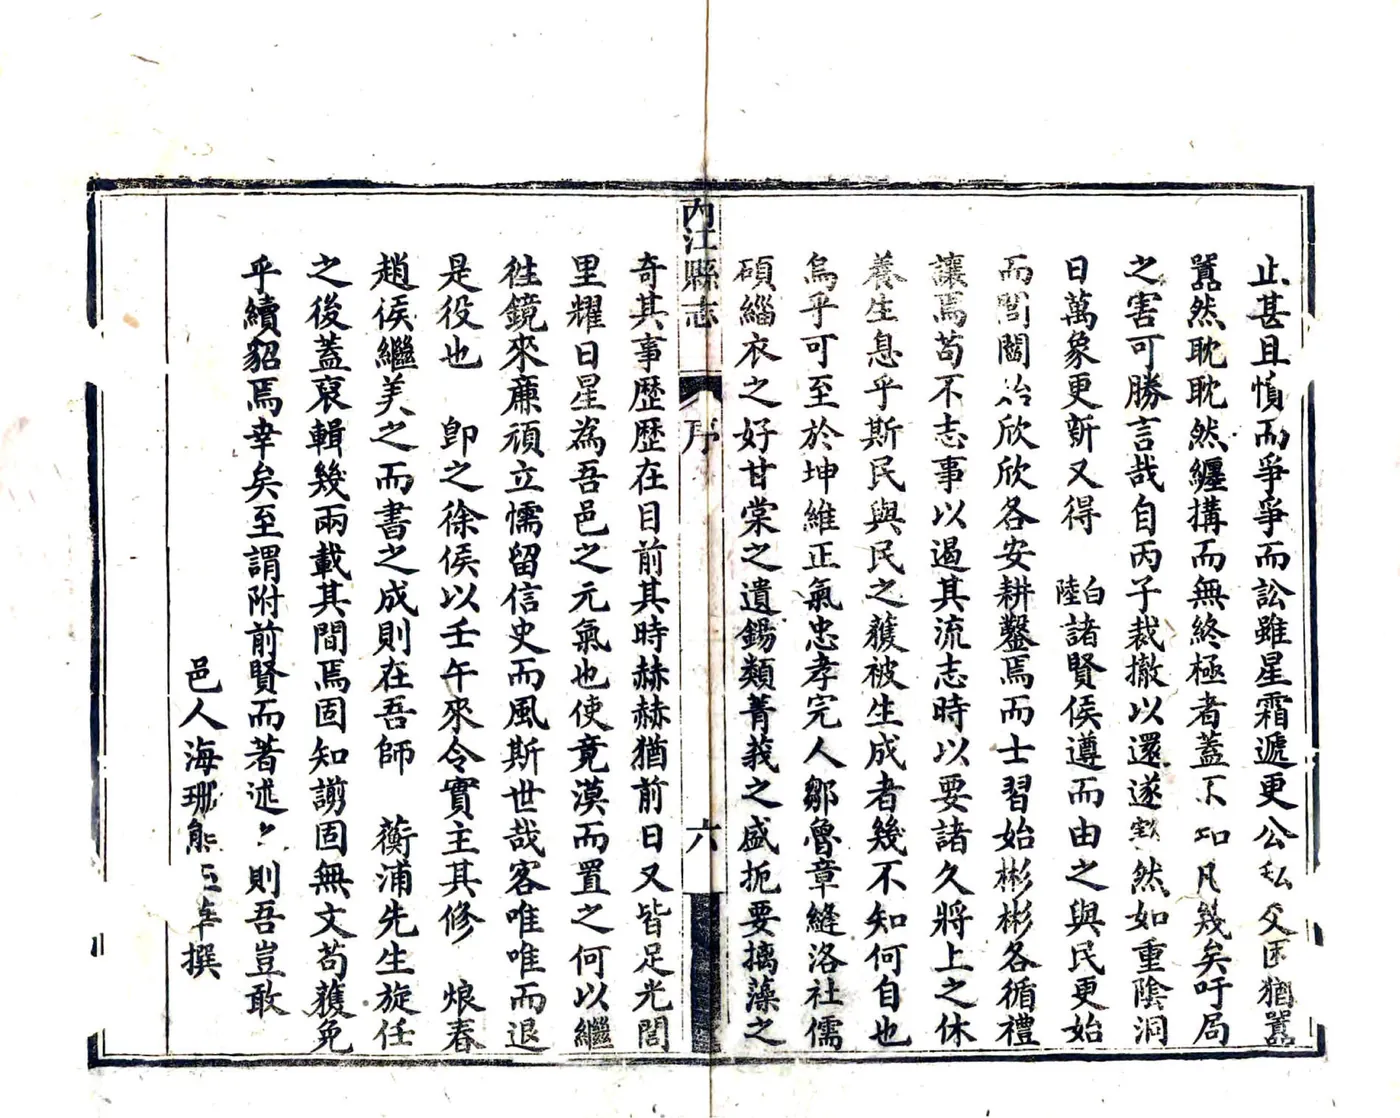 止甚且憤而爭爭而訟雖星霜遞更公私交困猶囂
囂然耽耽然纏搆而無終極者蓋不知凡幾矣吁局
之害可勝言哉自丙子裁撤以還遂然如重陰洞
日萬象更新又得 白陸諸賢侯遵而由之與民更始
而閭閻冶欣欣各安耕鑿焉而士習始彬彬各循禮
讓焉苟不志事以遏其流志時以要諸久將上之休
養生息乎斯民與民之蒦被生成者幾不知何自也
烏乎可至於坤維正氣忠孝完人鄒魯章縫洛社儒
碩緇衣之好甘棠之遺錫類菁莪之盛扼要摛藻之
內江縣志
序
六
奇其事歷歷在目前其時赫赫猶前日又皆足光閭
里耀日星為吾邑之元氣也使竟漠而置之何以繼
徃鏡來亷頑立懦留信史而風斯世哉客唯唯而退
是役也 卽之徐侯以壬午來令實主其修 烺春
趙侯繼美之而書之成則在吾師 蘅浦先生旋任
之後蓋裒輯幾兩載其間焉固知謭固無文苟蒦免
乎續貂焉幸矣至謂附前賢而著述則吾豈敢
邑人海珊熊撰